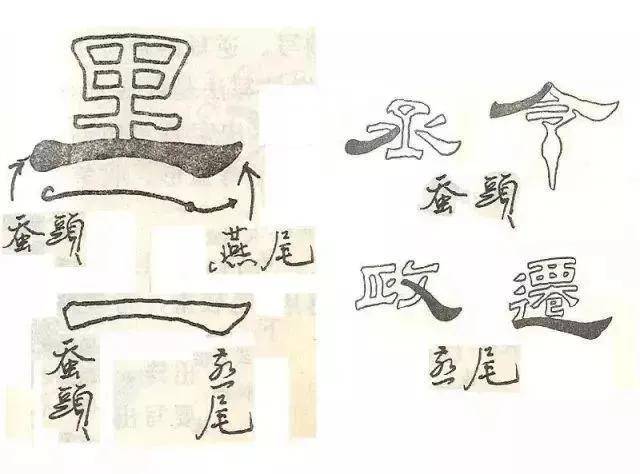 里
蚕頭 燕尾
一
蚕頭 燕尾
令
蚕頭
政 遷
燕尾